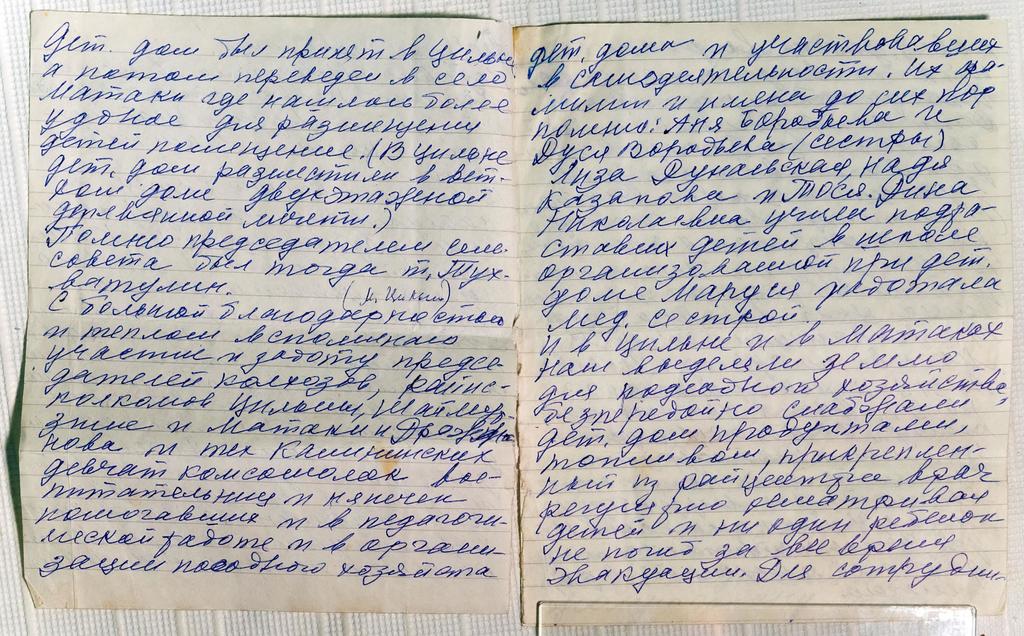 Дет. дом был принят в Цильне
а потом переведен в село
Матаки где нашлось более
удобное для размещения
детей помещение. (В Цильне
дет. дом разместили в вет-
хом доме двухэтажной
деревянной мечети.)
Помню председателем сель-
совета был тогда т. Тух-
ватулин.
С большой благодарностью
и теплом вспоминаю
участие и заботу предсе-
дателей колхозов, райис-
полкомов Цильни,
и Матаки и Дрожжа-
нова и тех Калининских
девчат комсомолок вос-
питательниц и нянечек
помогавших и в педагоги-
ческой работе и в органи-
зации подсобного хозяйства
дет. дома и участвовавших
в самодеятельности. Их фа-
милии и имена до сих пор
помню: Аня Воробьева и
Дуся Воробьева (сестры)
Лиза Дунаевская, Надя
Казакова и Тося. Дина
Николаевна учила подро-
ставших детей в школе
организованной при дет.
доме Маруся работала
мед. сестрой.
И в Цильне и в Матаках
нам выделяли землю
для подсобного хозяйства,
безперебойно снабжали
дет. дом продуктами,
топливом, прикреплен-
ный из райцентра врач
регулярно осматривал
детей и ни один ребенок
не погиб за все время
эвакуации. Для сотрудни-